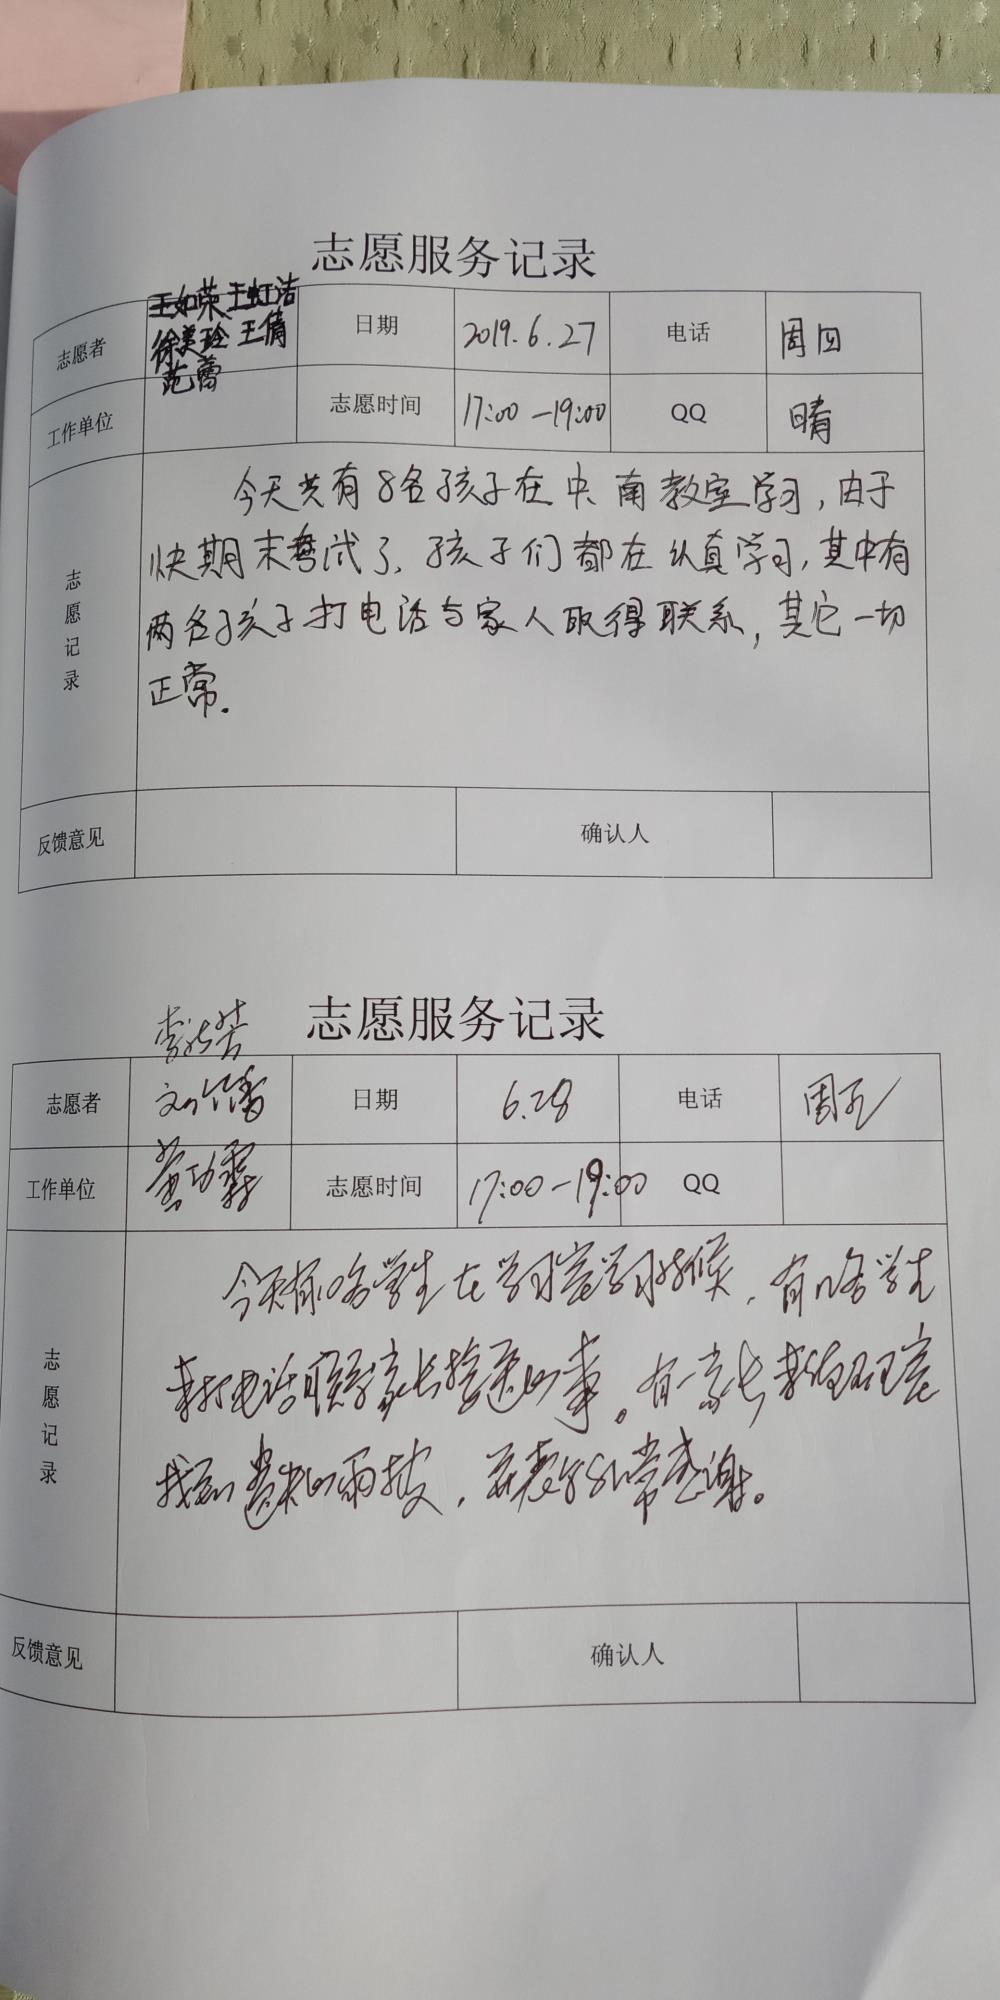 志愿服务记录
志愿者 王如荣 王虹洁 日期 2019.6.27 电话 周四
徐美玲 王倩
范蕾
工作单位 志愿时间 17:00-19:00 QQ 晴
志愿记录
今天共有8名孩子在中南教室学习,由于
快期末考试了,孩子们都在认真学习,其中有
两名孩子打电话与家人取得联系,其它一切
正常.
反馈意见 确认人
志愿服务记录
志愿者 日期 6.28 电话 周五
工作单位 志愿时间 17:00-19:00 QQ
志愿记录
今天有 名学生在学习室学习 候,有 名学生
来打电话联系家长接送的事。有一家长来 室
找到遗失的雨披,并表示非常感谢。
反馈意见 确认人